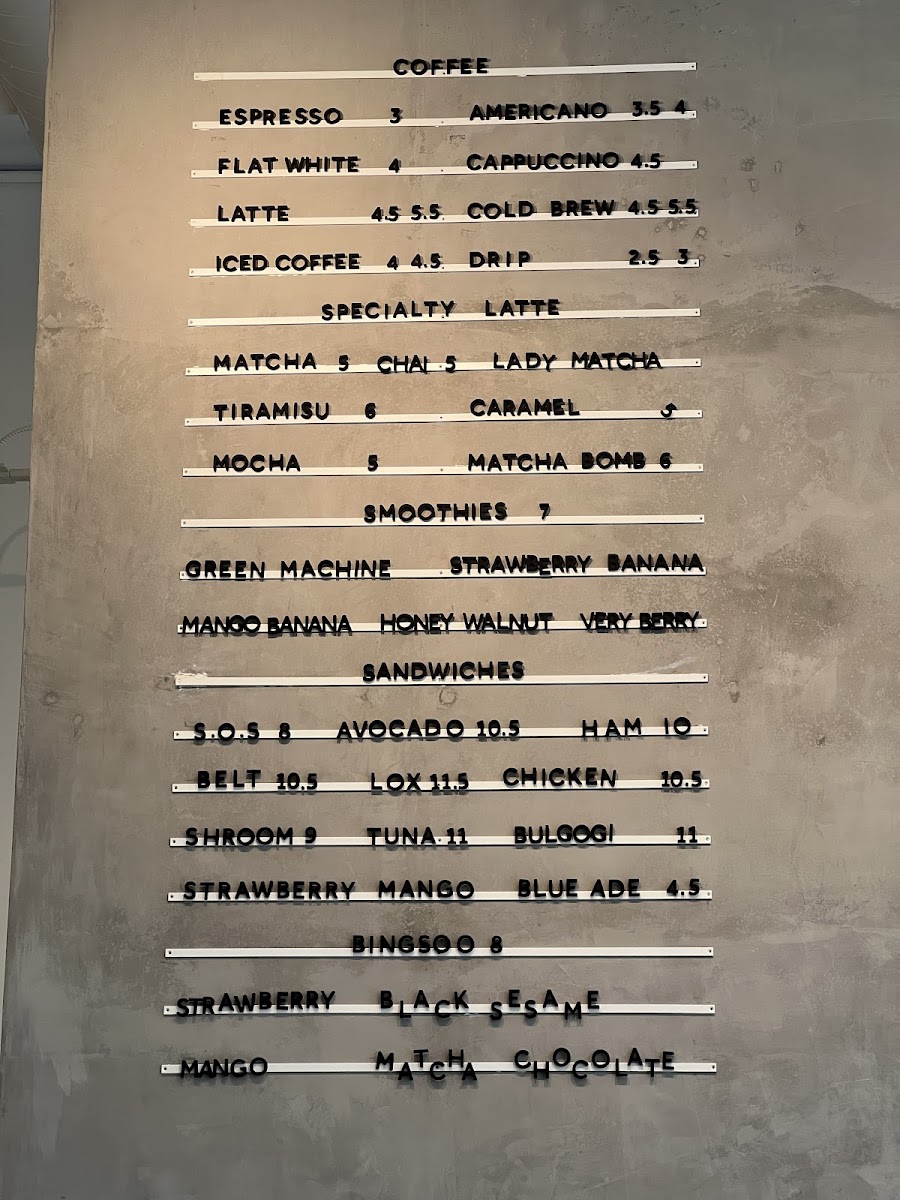 COFFEE
ESPRESSO 3 AMERICANO 3.5 4
FLAT WHITE 4 CAPPUCCINO 4.5
LATTE 4.5 5.5 COLD BREW 4.5 5.5
ICED COFFEE 4 4.5 DRIP 2.5 3
SPECIALTY LATTE
MATCHA 5 CHAI 5 LADY MATCHA
TIRAMISU 6 CARAMEL
MOCHA 5 MATCHA BOMB 6
SMOOTHIES 7
GREEN MACHINE STRAWBERRY BANANA
MANGO BANANA HONEY WALNUT VERY BERRY
SANDWICHES
S.O.S 8 AVOCADO 10.5 HAM 10
BELT 10.5 LOX 11.5 CHICKEN 10.5
SHROOM 9 TUNA 11 BULGOGI 11
STRAWBERRY MANGO BLUE ADE 4.5
BINGSOO 8
STRAWBERRY BLACK SESAME
MANGO MATCHA CHOCOLATE